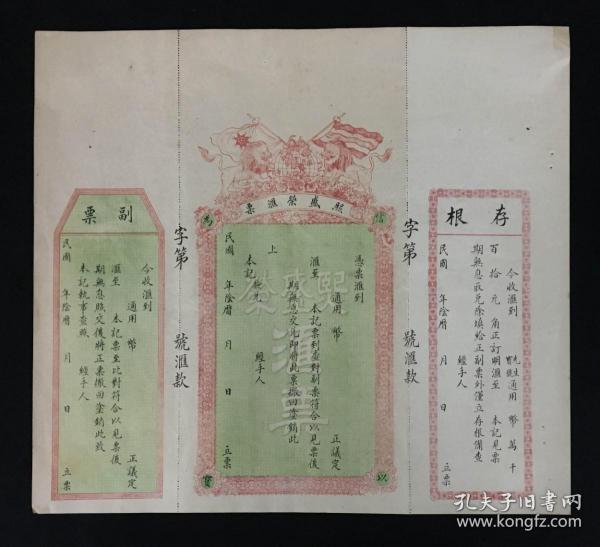 存根
今收匯到
先生
寶號
通用 幣 萬 千
百 拾 元 角正訂明匯至 本記見票
期無息兌除填給正副票外僅立存根備查
經手人
民國 年陰曆 月 日 立票
字第 號匯款
熙盛榮匯票
信
以
為
寶
憑票匯到
通用 幣 正議定
匯至 本記票到查對副票符合以見票後
期無息交兌即將此票撤回塗銷此
上
本記
經手人
民國 年陰曆 月 日 立票
熙盛榮
匯
章
字第 號匯款
副票
今收匯到
通用 幣 正議定
匯至 本記票至比對符合以見票後
期無息照交後將正票撤回塗銷此致
本記執事查照 經手人
民國 年陰曆 月 日 立票
孔夫子旧书网
www.kongfz.com